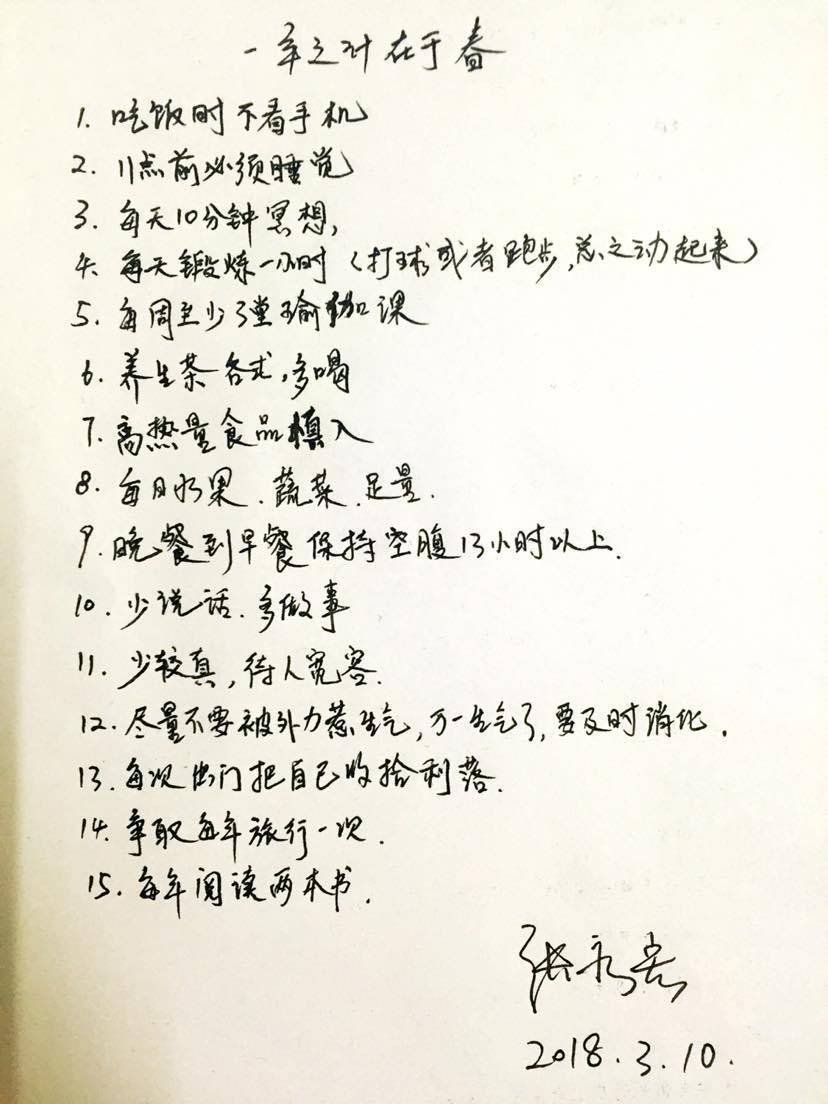 一年之计在于春
1. 吃饭时不看手机
2. 11点前必须睡觉
3. 每天10分钟冥想,
4. 每天锻炼一小时（打球或者跑步,总之动起来）
5. 每周至少3堂瑜伽课
6. 养生茶各式,多喝
7. 高热量食品慎入
8. 每日水果、蔬菜、足量.
9. 晚餐到早餐保持空腹13小时以上.
10. 少说话、多做事
11. 少较真,待人宽容.
12. 尽量不要被外力惹生气,万一生气了,要及时消化.
13. 每次出门把自己收拾利落.
14. 争取每年旅行一次.
15. 每年阅读两本书.
张永
2018.3.10.